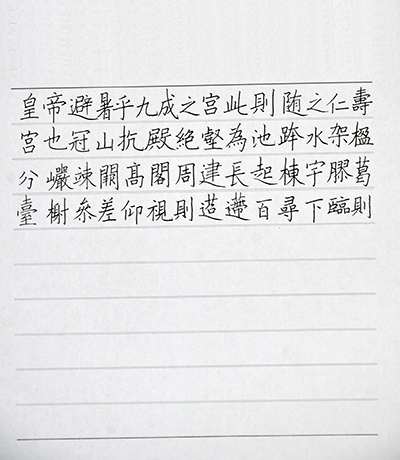 皇帝避暑乎九成之宮此則随之仁壽
宮也冠山抗殿絶壑為池跨水架楹
分巗竦闕髙閣周建長起棟宇膠葛
臺榭叅差仰視則迢遰百尋下臨則